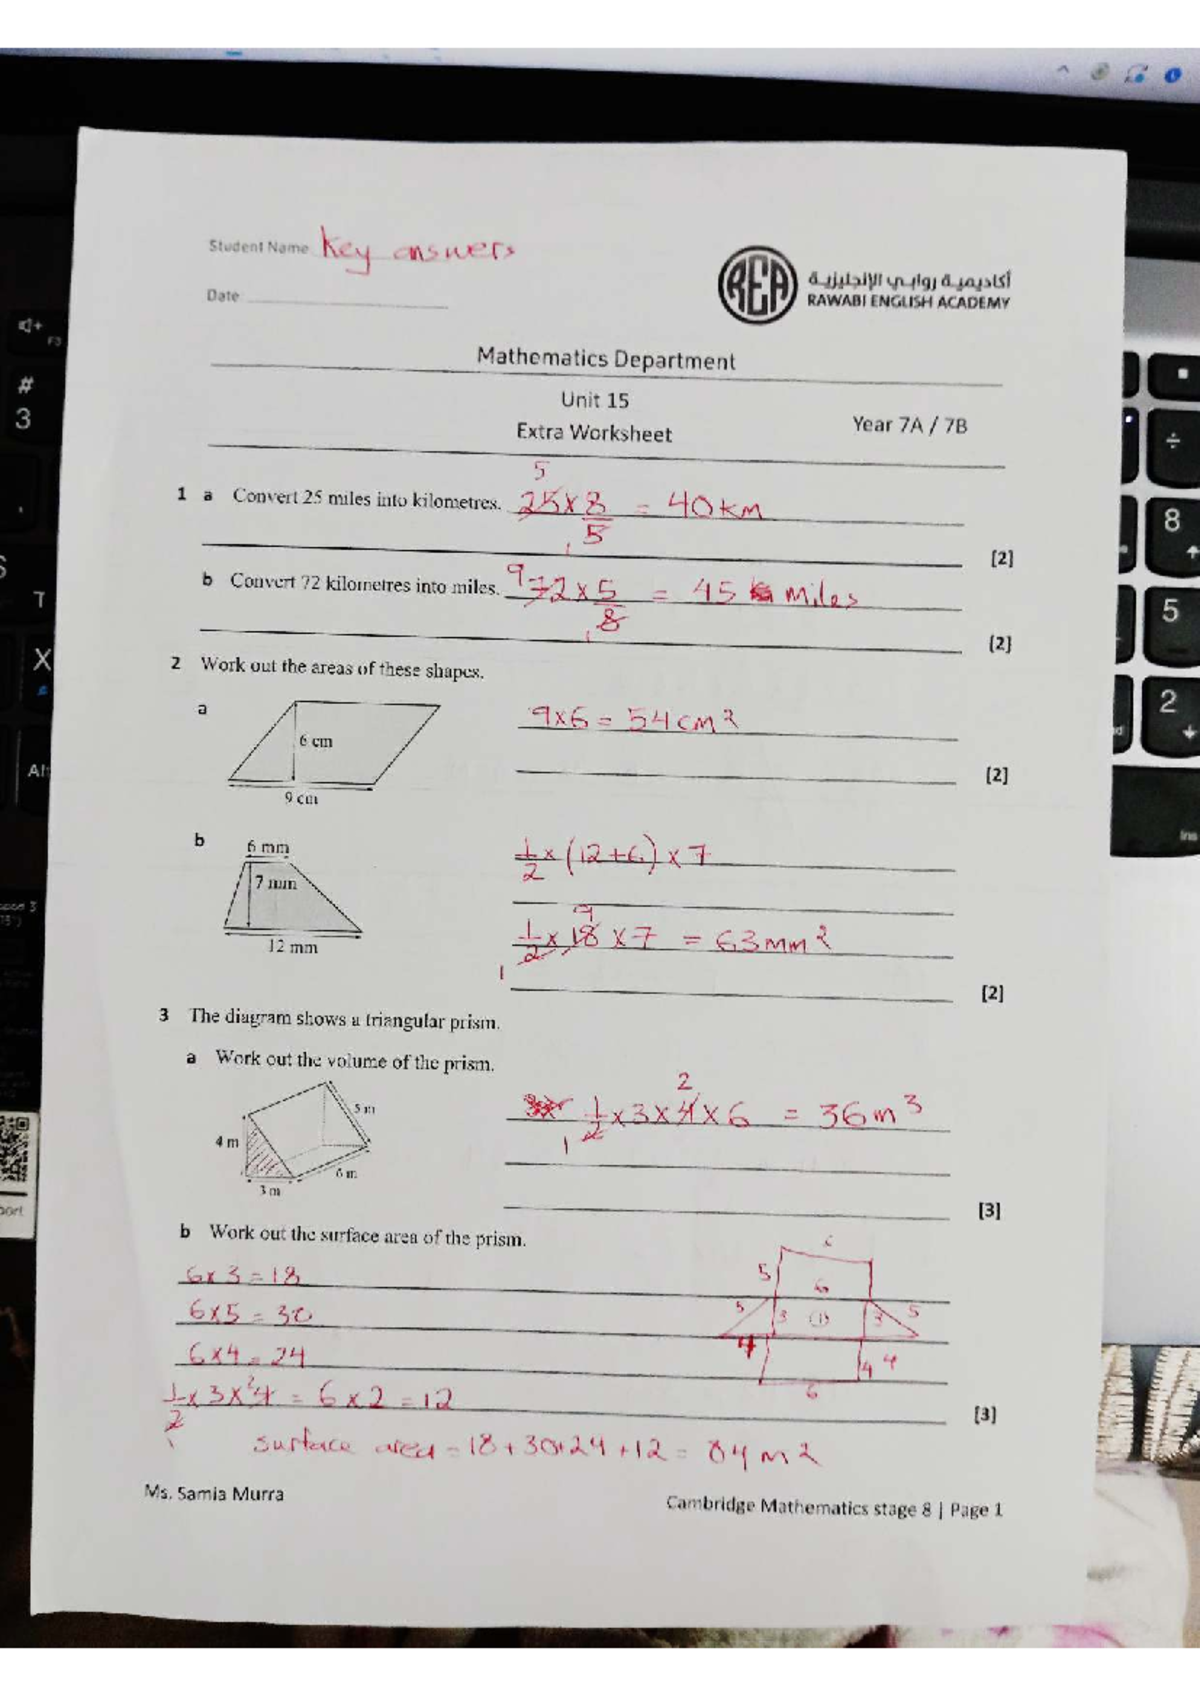 Student Name Key answers
Date
REA
أكاديمية روابي الإنجليزية
RAWABI ENGLISH ACADEMY
Mathematics Department
Unit 15
Extra Worksheet
Year 7A / 7B
1 a Convert 25 miles into kilometres. 5 25 x 8/5 1 = 40 km
[2]
b Convert 72 kilometres into miles. 9 72 x 5/8 1 = 45 miles
[2]
2 Work out the areas of these shapes.
a 9x6 = 54 cm²
6 cm
[2]
9 cm
b 6 mm
1/2 x (12+6) x 7
7 mm
9
1/2 x 18 x 7 = 63 mm²
12 mm
1 1
[2]
3 The diagram shows a triangular prism.
a Work out the volume of the prism.
2
5 m
1/2 x 3 x 4 x 6 = 36 m³
1
4 m
6 m
3 m
[3]
b Work out the surface area of the prism.
6x3 = 18
5
6
6x5 = 30
5 3 (1) 3 5
6x4 = 24
4 4 4
6
1/2 x 3 x 4 2 = 6 x 2 = 12
1
[3]
surface area = 18 + 30 + 24 + 12 = 84 m²
Ms. Samia Murra
Cambridge Mathematics stage 8 | Page 1
F3
#
3
T
X
Alt
÷
8
5
2
Ins